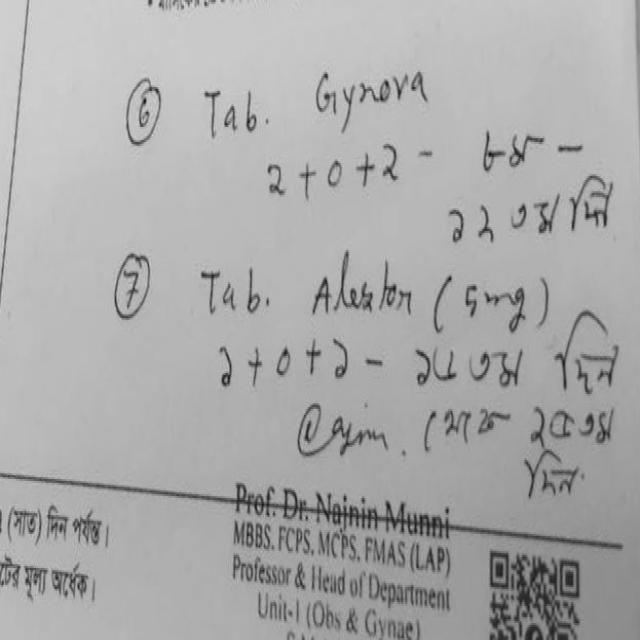 ⑥ Tab. Gynova
২+০+২ - ৮ম -
১২ তম দিন
⑦ Tab. (5mg)
১+০+১ - ১৫ তম দিন
থেকে ২৫ তম
দিন
(সাত) দিন পর্যন্ত।
মূল্য অর্ধেক।
Prof. Dr. Najnin Munni
MBBS, FCPS, MCPS, FMAS (LAP)
Professor & Head of Department
Unit-I (Obs & Gynae)